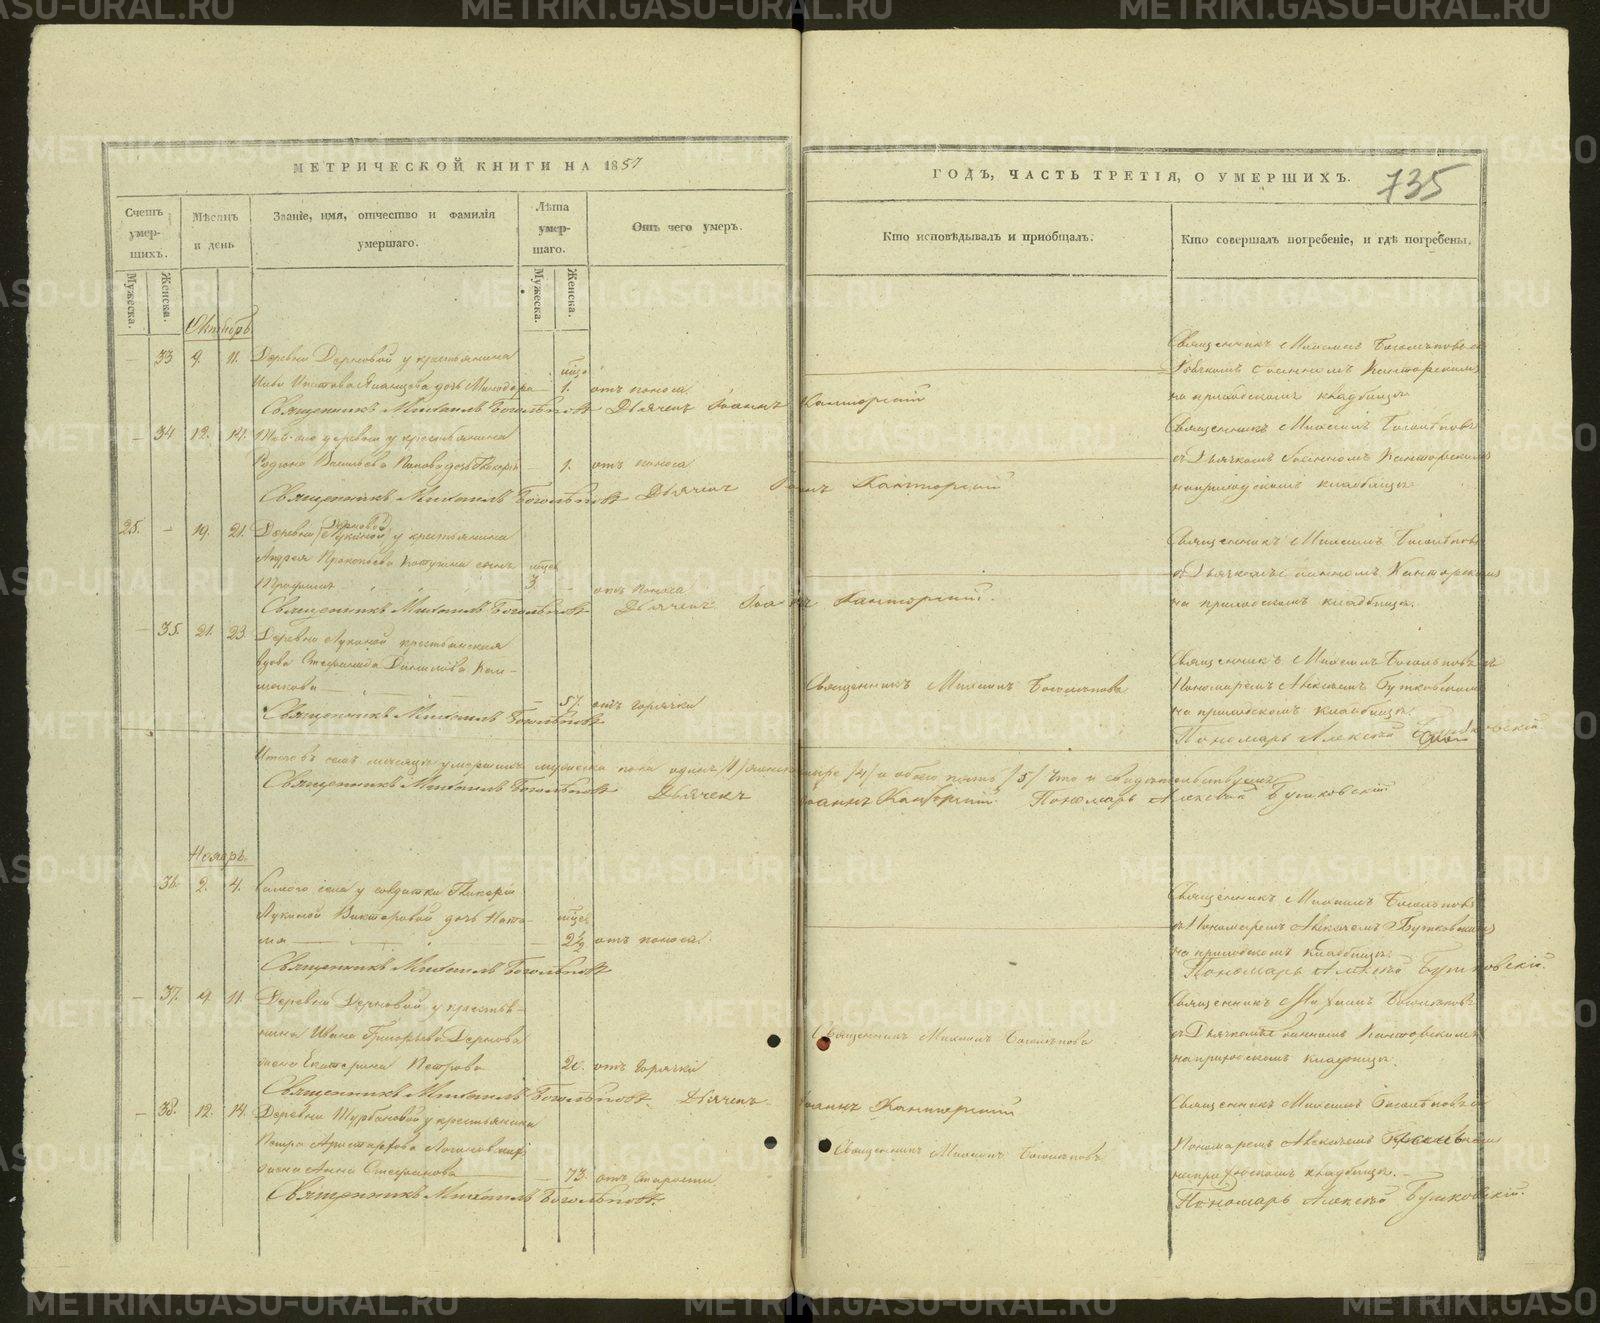 МЕТРИЧЕСКОЙ КНИГИ НА 1857
ГОДЪ, ЧАСТЬ ТРЕТІЯ, О УМЕРШИХЪ.
735
Счетъ умер-шихъ.
Мѣсяцъ и день
Званіе, имя, отчество и фамилія умершаго.
Лѣта умер-шаго.
Отъ чего умеръ.
Кто исповѣдывалъ и пріобщалъ.
Кто совершалъ погребеніе, и гдѣ погребены.
Мужеска.
Женска.
Мужеска.
Женска.
Октябрь
33 9. 11. Деревни Дерновой у крестьянина
дочь Минодора 1. отъ поноса
Священникъ Михаилъ Боголѣповъ Дьячекъ Іоаннъ Канторскій
Священникъ Михаилъ Боголѣповъ съ
Дьячкомъ Іоанномъ Канторскимъ
на приходскомъ кладбищѣ
34 12. 14. Той-же деревни у крестьянина
Родіона Васильева Попова дочь Гликерія 1. отъ поноса
Священникъ Михаилъ Боголѣповъ Дьячекъ Іоаннъ Канторскій
Священникъ Михаилъ Боголѣповъ
съ Дьячкомъ Іоанномъ Канторскимъ
на приходскомъ кладбищѣ
25. 19. 21. Деревни Дерновой у крестьянина
Андрея Прокопьева сынъ
3. отъ поноса
Священникъ Михаилъ Боголѣповъ Дьячекъ Іоаннъ Канторскій.
Священникъ Михаилъ Боголѣповъ
съ Дьячкомъ Іоанномъ Канторскимъ
на приходскомъ кладбищѣ.
35. 21. 23. Деревни Лукиной крестьянская
вдова Стефанида Данилова
57. отъ горячки
Священникъ Михаилъ Боголѣповъ
Священникъ Михаилъ Боголѣповъ
Священникъ Михаилъ Боголѣповъ съ
Пономаремъ Алексѣемъ Бутковскимъ
на приходскомъ кладбищѣ.
Пономарь Алексѣй Бутковскій
Итого въ семъ мѣсяцѣ умершихъ мужеска пола одинъ /1/ женска четыре /4/ а обоего пять /5/ что и свидѣтельствуемъ
Священникъ Михаилъ Боголѣповъ Дьячекъ Іоаннъ Канторскій Пономарь Алексѣй Бутковскій
Ноябрь.
36. 2. 4. Самого села у солдатки Гликеріи
Лукиной Викторовой дочь
2½ отъ поноса.
Священникъ Михаилъ Боголѣповъ
Священникъ Михаилъ Боголѣповъ
съ Пономаремъ Алексѣемъ Бутковскимъ
на приходскомъ кладбищѣ.
Пономарь Алексѣй Бутковскій.
37. 9. 11. Деревни Дерновой у крестья-
нина Ивана Григорьева Дернова
жена Екатерина Петрова отъ горячки
Священникъ Михаилъ Боголѣповъ. Дьячекъ Іоаннъ Канторскій
Священникъ Михаилъ Боголѣповъ
Священникъ Михаилъ Боголѣповъ
съ Дьячкомъ Іоанномъ Канторскимъ
на приходскомъ кладбищѣ.
38. 12. 14. Деревни Турбановой у крестьянина
Петра Аристархова
жена Анна Стефанова 73. отъ старости
Священникъ Михаилъ Боголѣповъ.
Священникъ Михаилъ Боголѣповъ
Священникъ Михаилъ Боголѣповъ съ
Пономаремъ Алексѣемъ
на приходскомъ кладбищѣ.
Пономарь Алексѣй Бутковскій.
METRIKI.GASO-URAL.RU